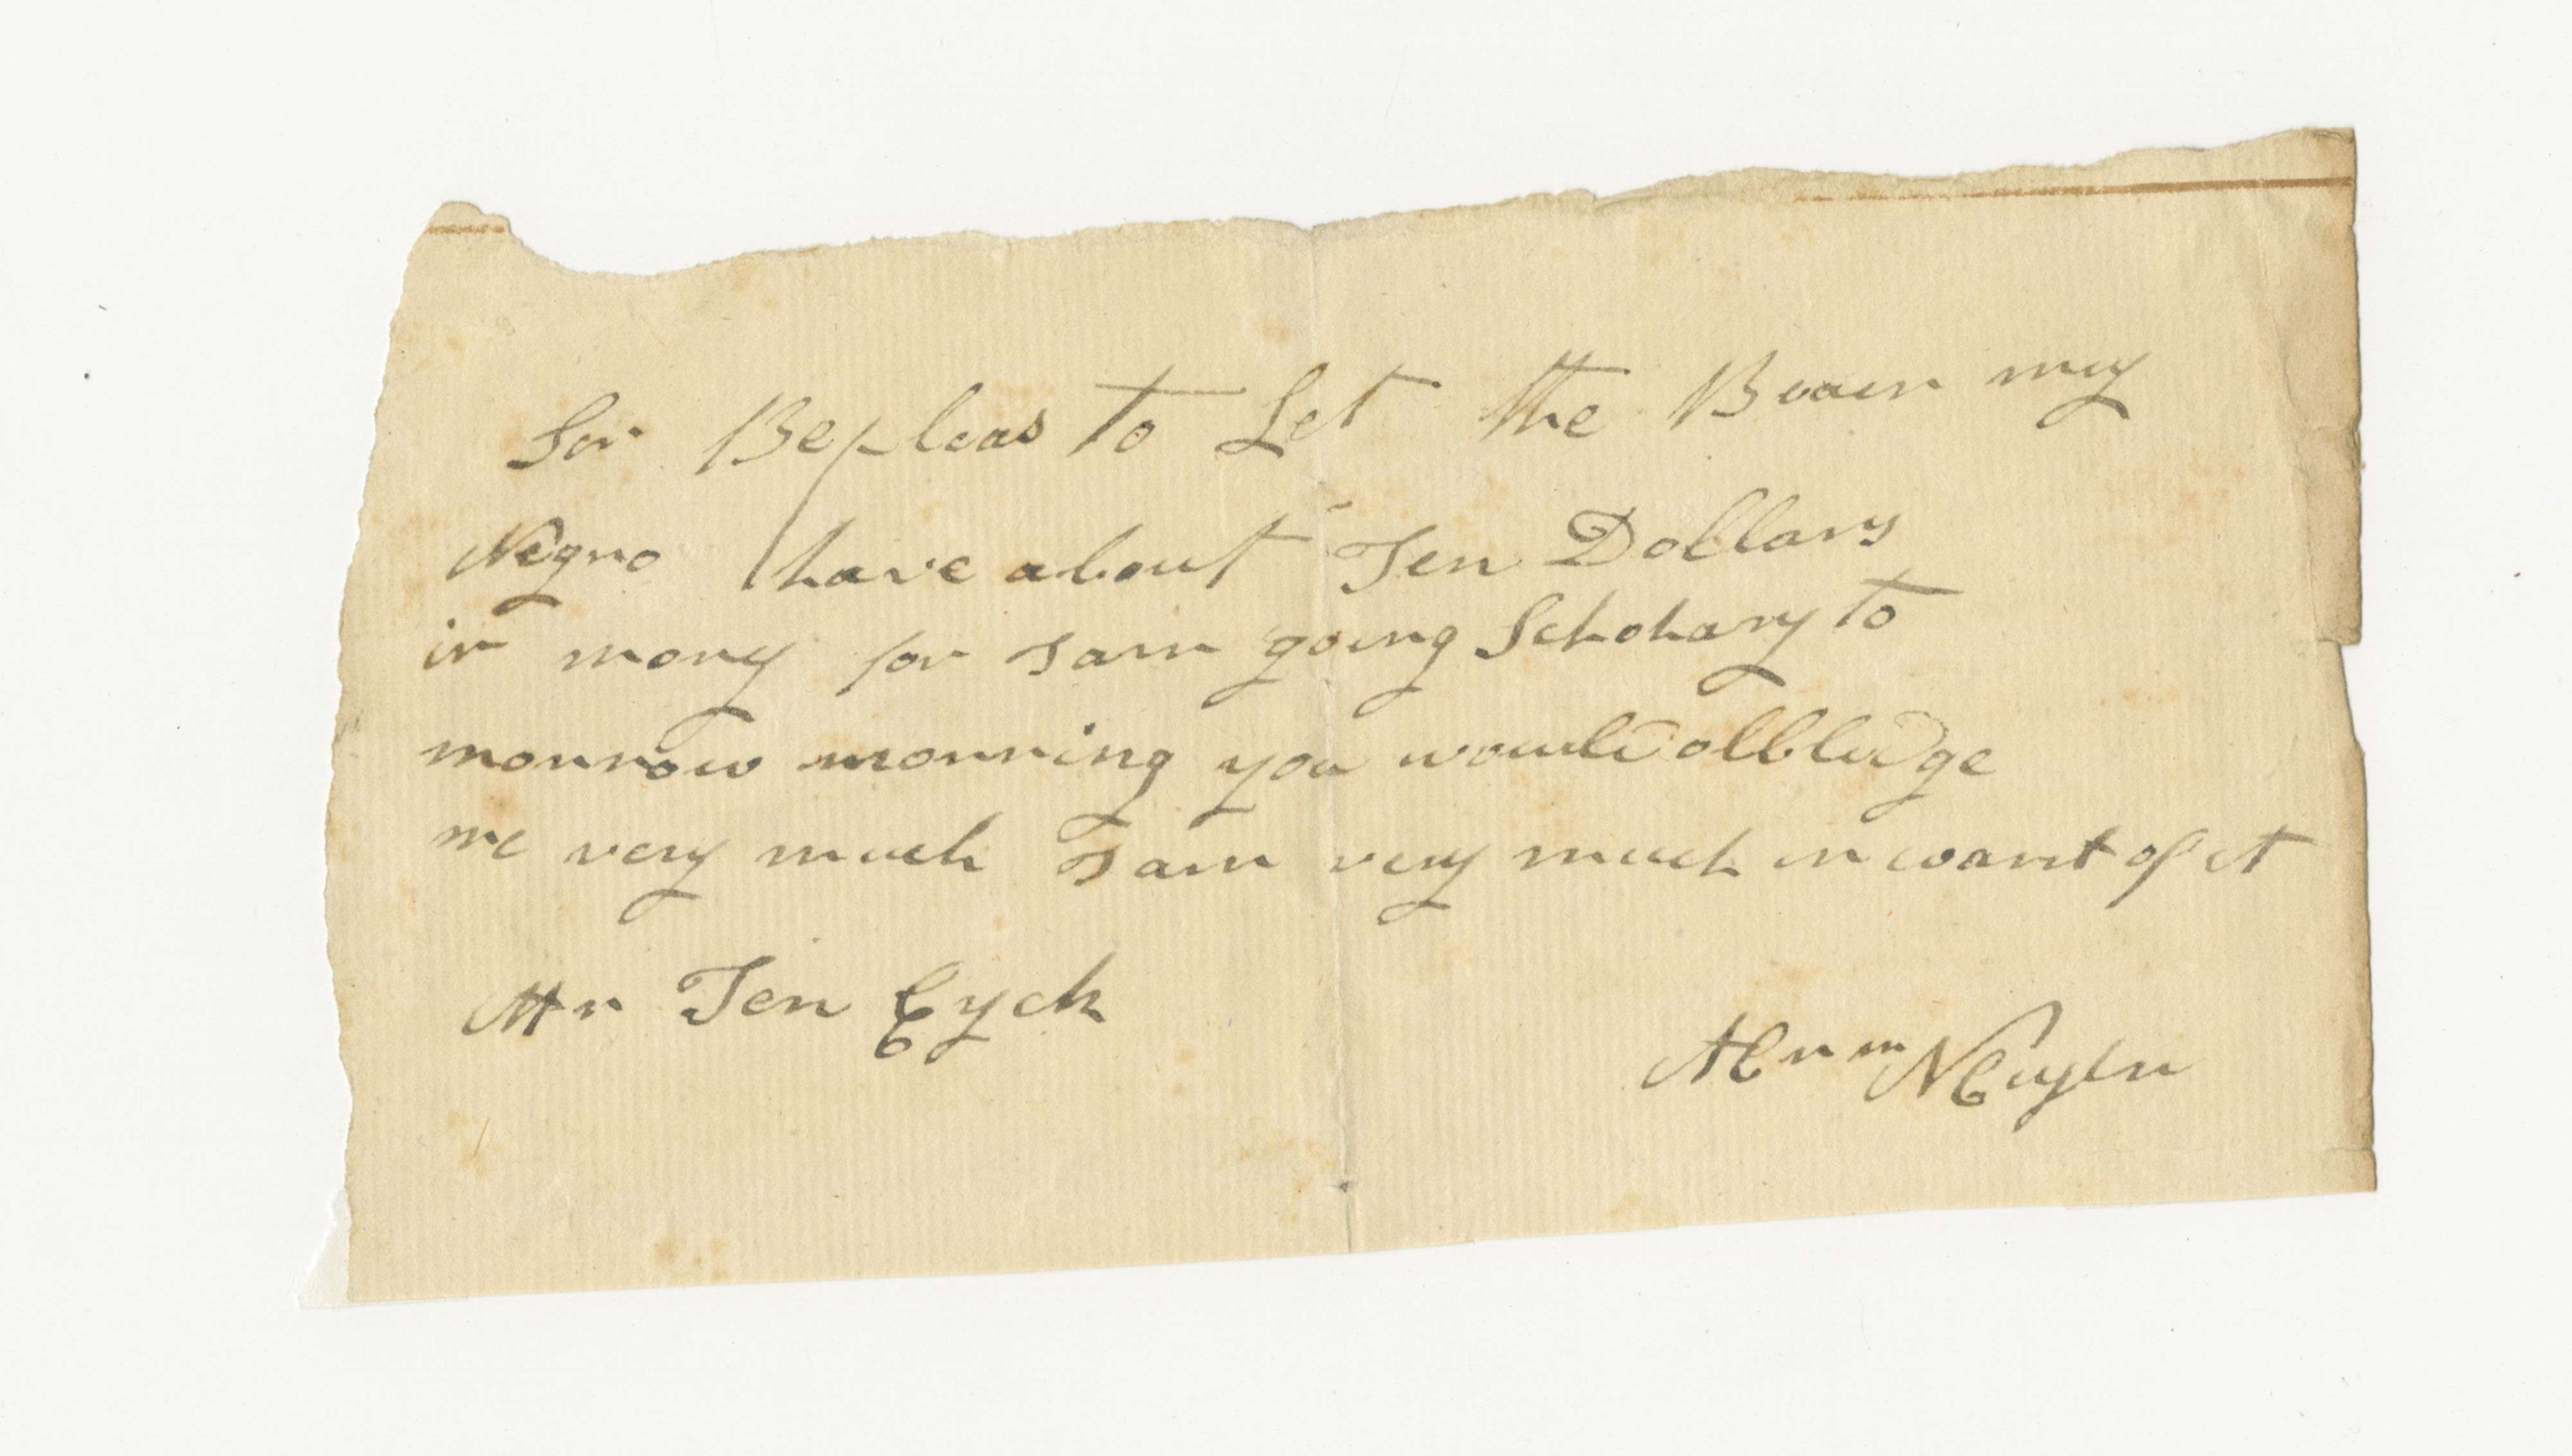 Sir Bepleas to Let the Boaer my
Negro have about Ten Dollars
in mony for I am going Schohary to
morrow morning you would oblldge
me very much I am very much in want of it
Mr Ten Eyck
Abrm N Cuyler